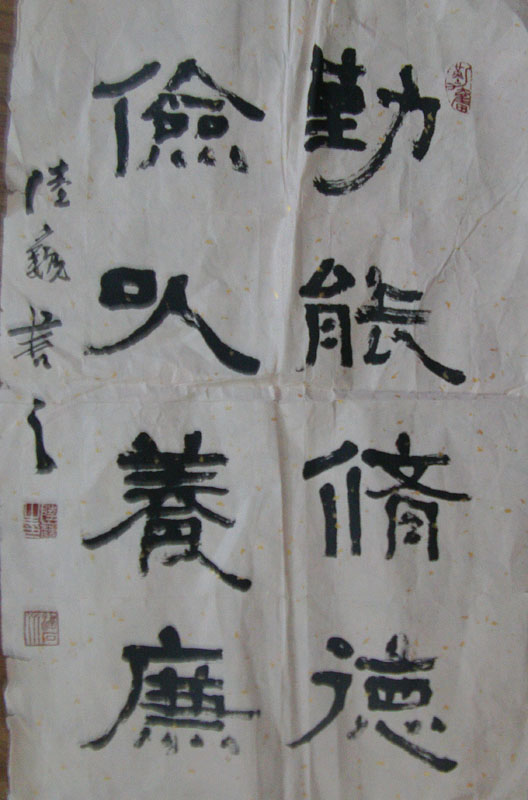 勤能脩德
儉以養廉
陸書之